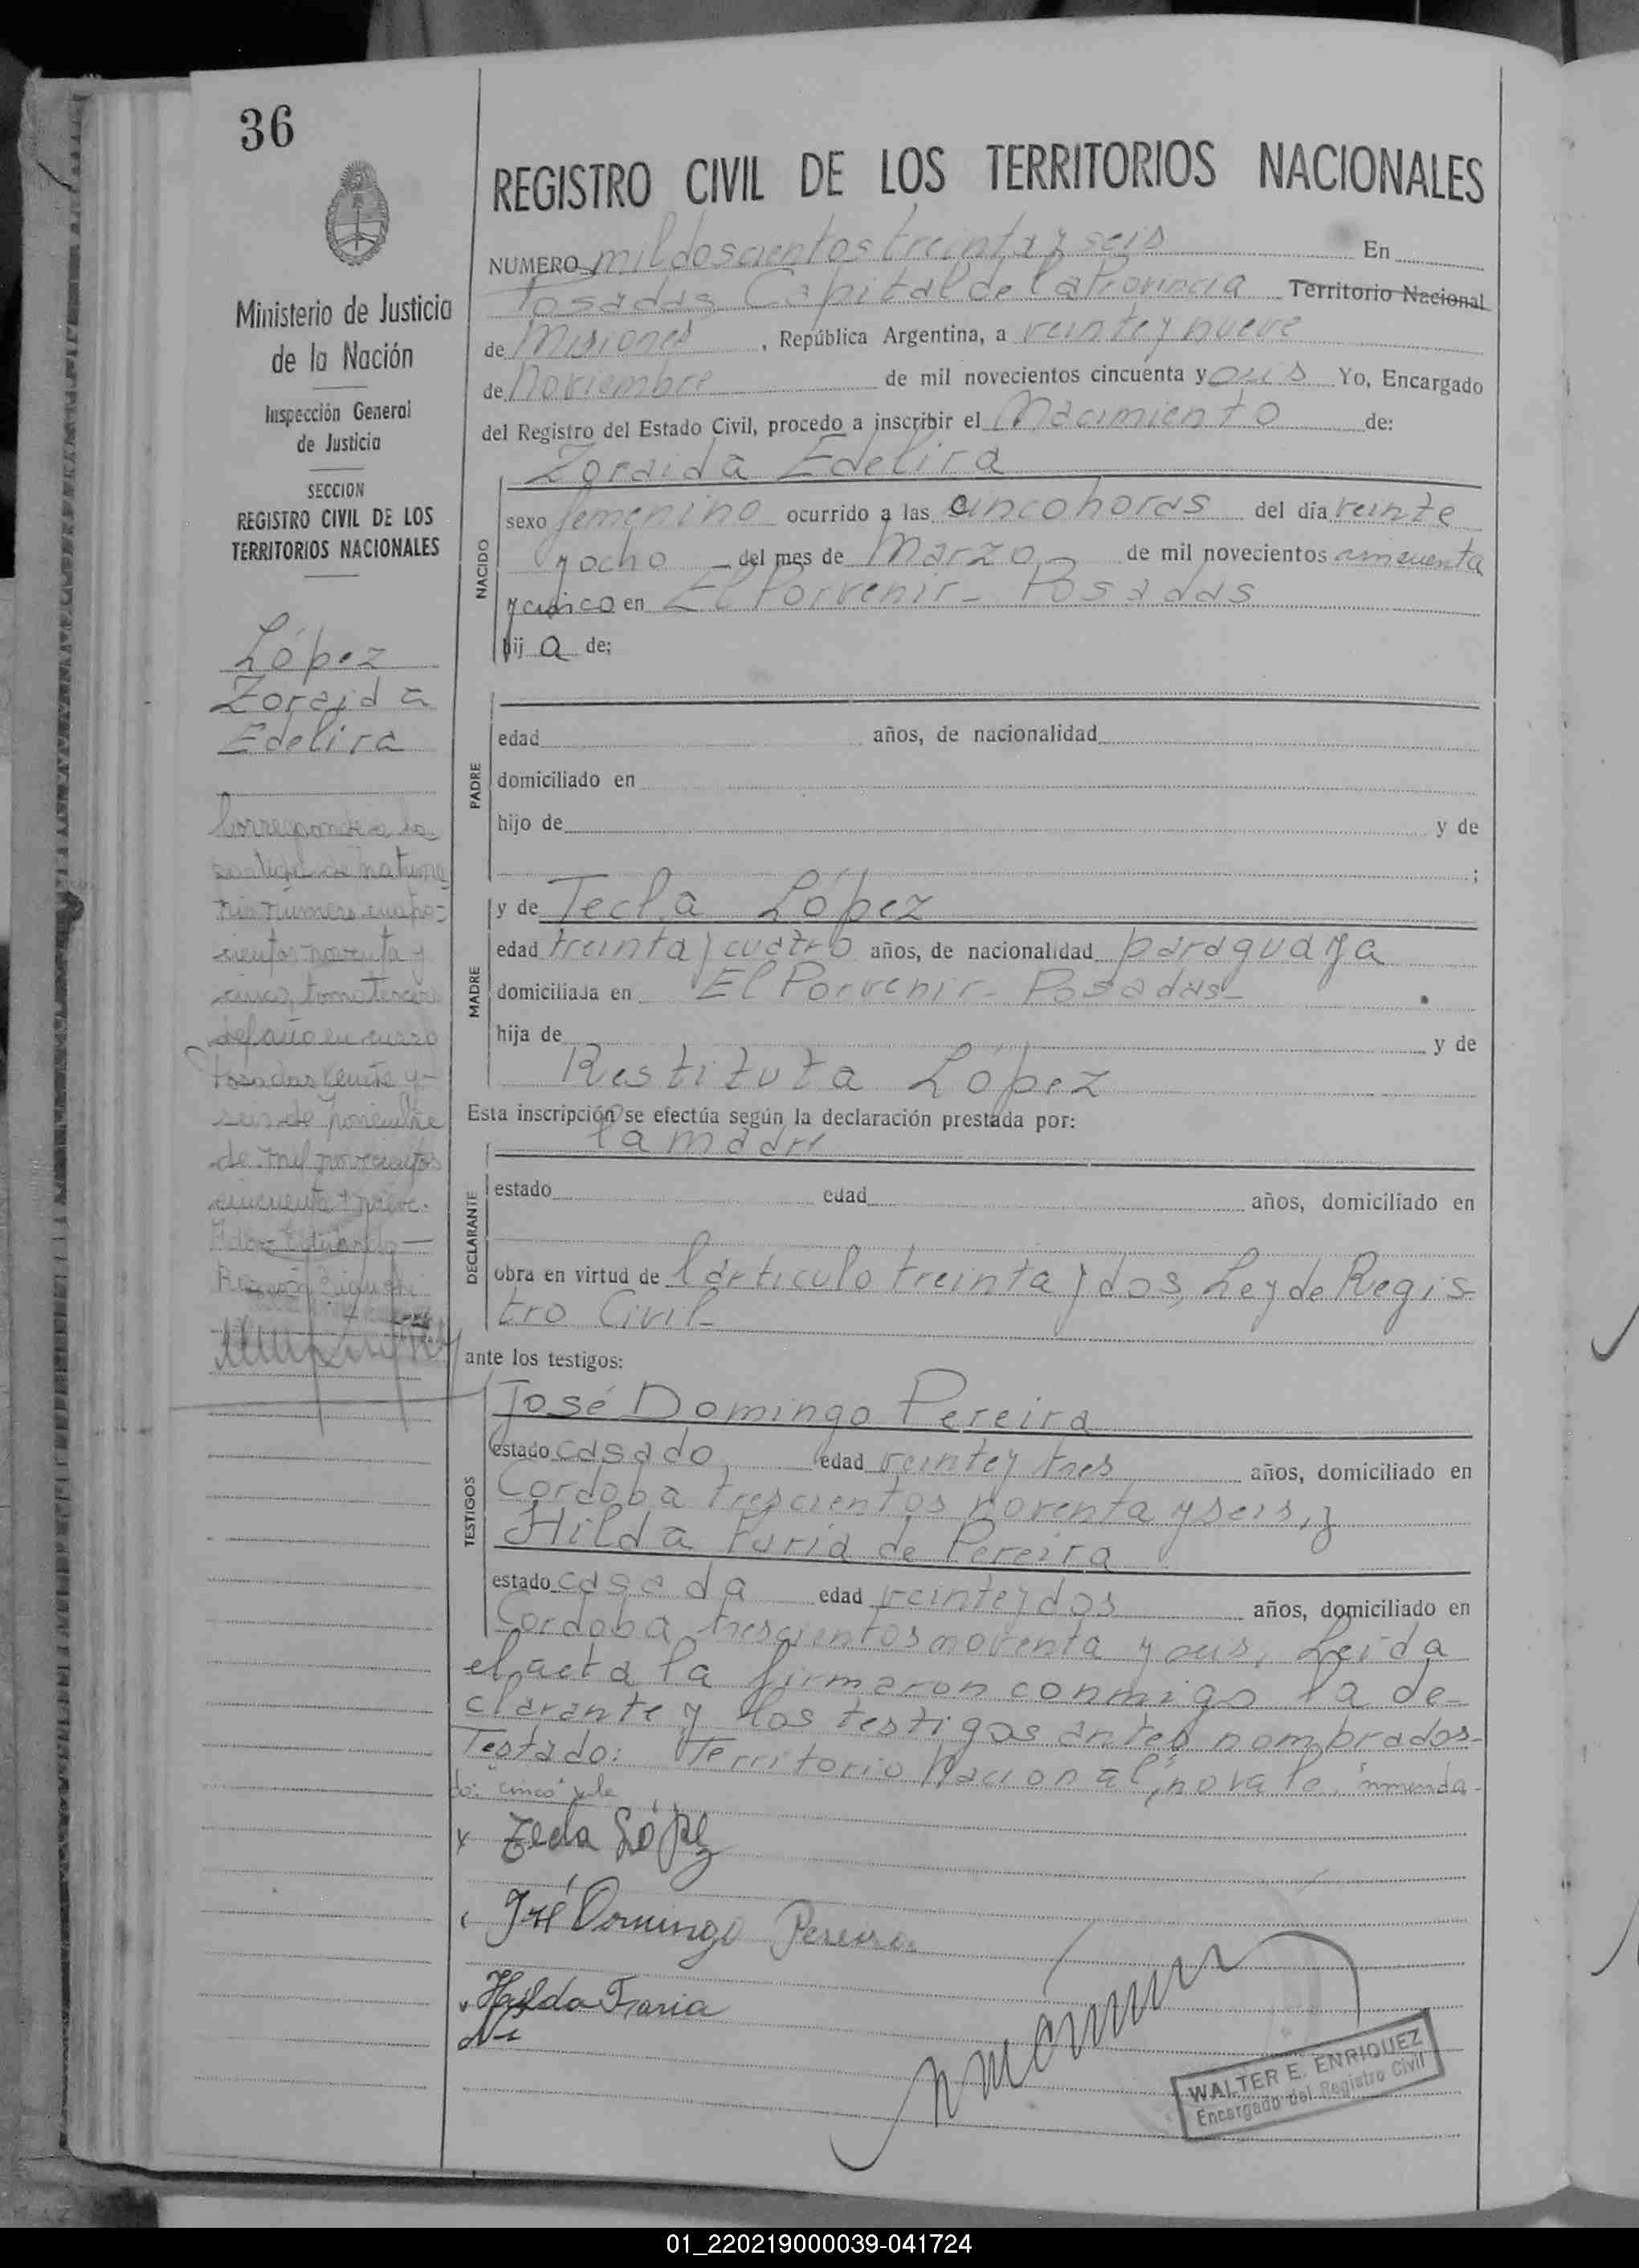 36
REGISTRO CIVIL DE LOS TERRITORIOS NACIONALES
NUMERO mil doscientos treinta y seis En
Posadas Capital de la Provincia Territorio Nacional
de Misiones, República Argentina, a veinte y nueve
de Noviembre de mil novecientos cincuenta y seis Yo, Encargado
del Registro del Estado Civil, procedo a inscribir el Nacimiento de:
Zoraida Edelira
NACIDO
sexo femenino ocurrido a las cinco horas del día veinte
y ocho del mes de Marzo de mil novecientos cincuenta
y cinco en El Porvenir - Posadas
hij a de:
PADRE
edad años, de nacionalidad
domiciliado en
hijo de y de
;
MADRE
y de Tecla López
edad treinta y cuatro años, de nacionalidad paraguaya
domiciliada en El Porvenir - Posadas-
hija de y de
Restituta López
Esta inscripción se efectúa según la declaración prestada por:
la madre
DECLARANTE
estado edad años, domiciliado en
obra en virtud de l artículo treinta y dos, Ley de Regis-
tro Civil-
ante los testigos:
TESTIGOS
José Domingo Pereira
estado casado, edad veinte y tres años, domiciliado en
Cordoba trescientos noventa y seis, y
Hilda Faria de Pereira
estado casada edad veinte y dos años, domiciliado en
Cordoba trescientos noventa y seis, Leída
el acta la firmaron conmigo la de-
clarante y los testigos antes nombrados-
Testado: "Territorio Nacional", no vale. "nmenda-
do: "cinco" vale
Tecla López
José Domingo Pereira
Hilda Faria
de
WALTER E. ENRIQUEZ
Encargado del Registro Civil
Ministerio de Justicia
de la Nación
Inspección General
de Justicia
SECCION
REGISTRO CIVIL DE LOS
TERRITORIOS NACIONALES
López
Zoraida
Edelira
Corresponde a la
partida de matrimo-
nio número cuatro-
cientos noventa y
cinco, tomo tercero
del año en curso
Posadas veinte y
seis de Noviembre
de mil novecientos
cincuenta y nueve.
01_220219000039-041724